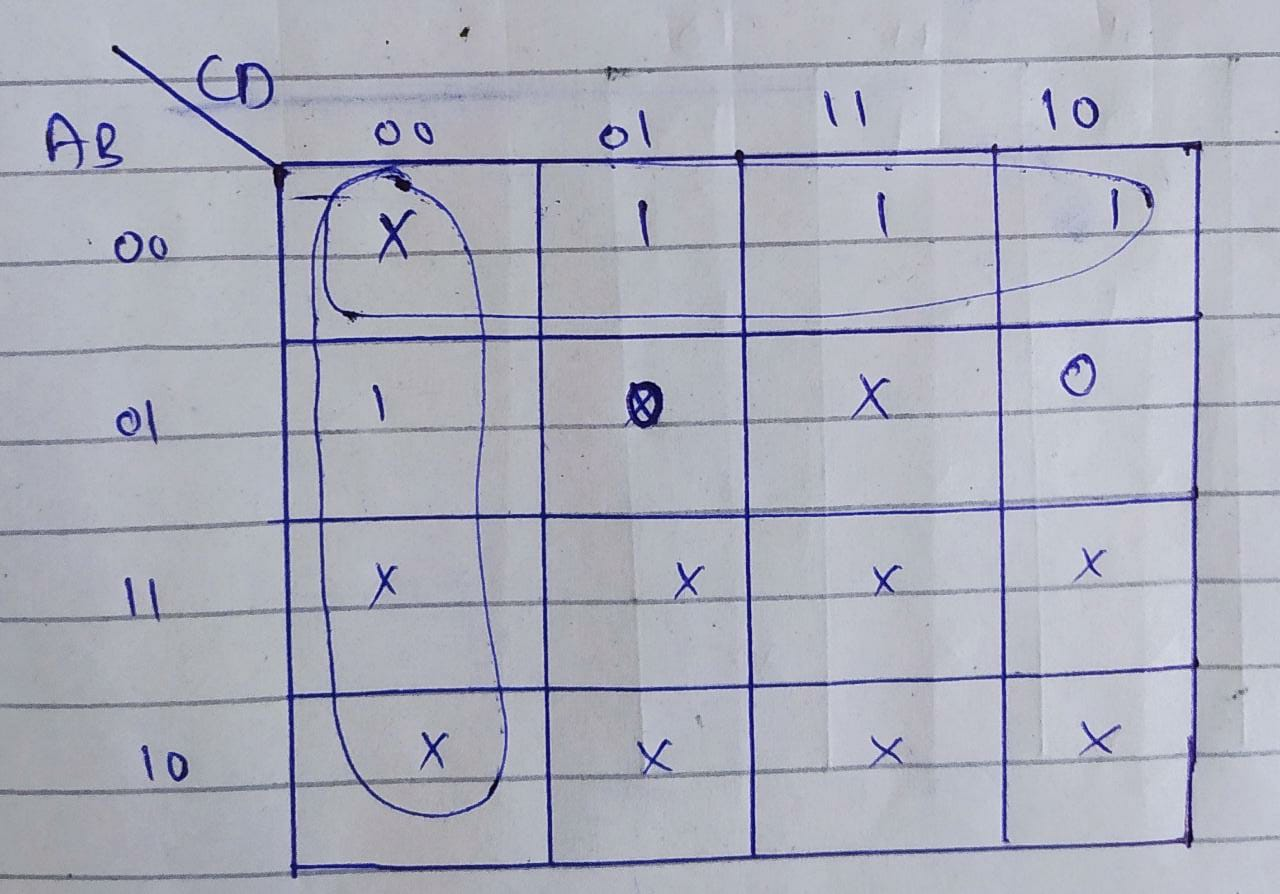 CD
AB
00 01 11 10
00 X 1 1 1
01 1 X 0
11 X X X X
10 X X X X